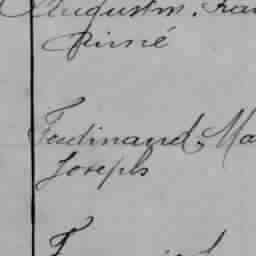 Augustin, Fra
Aimé
Ferdinand, Ma
Joseph